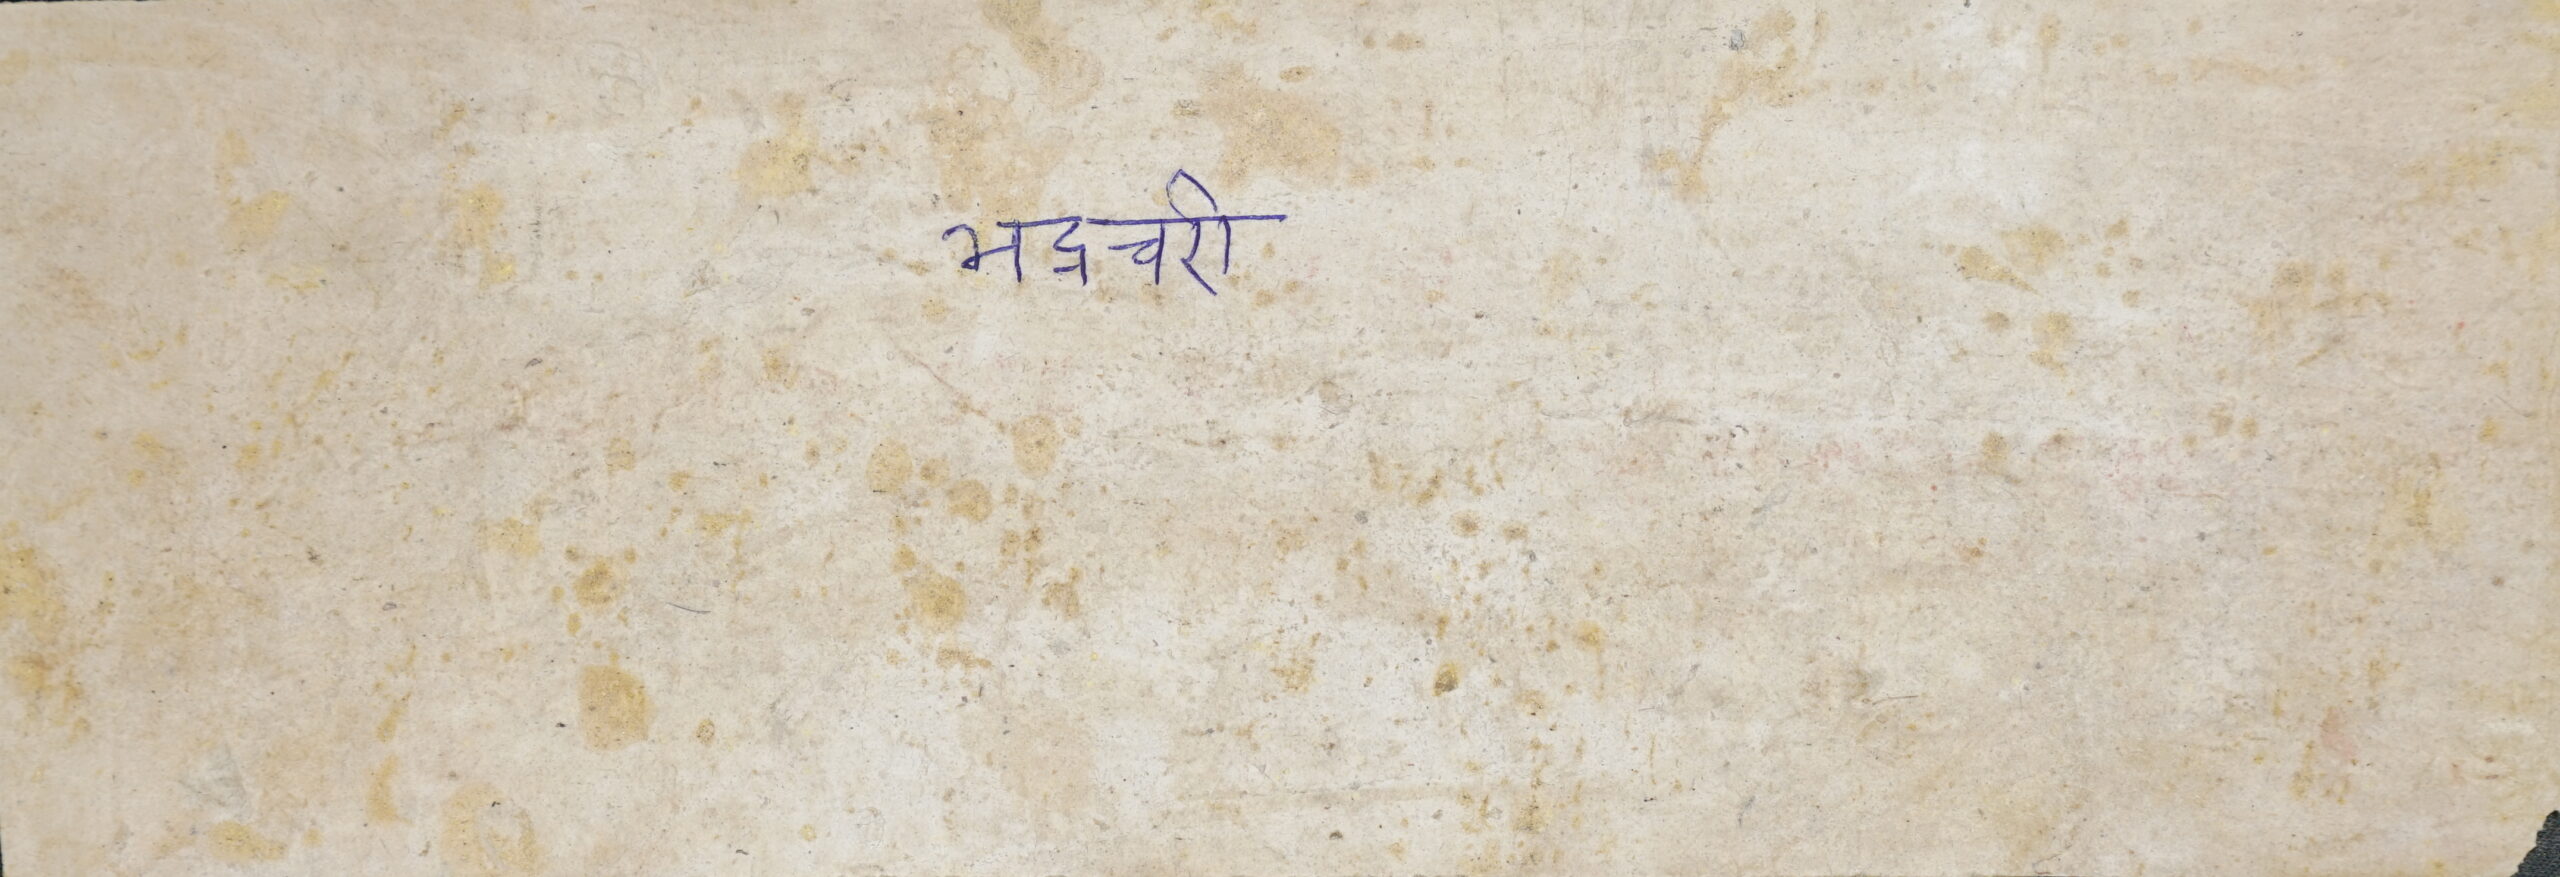 भद्रचरी